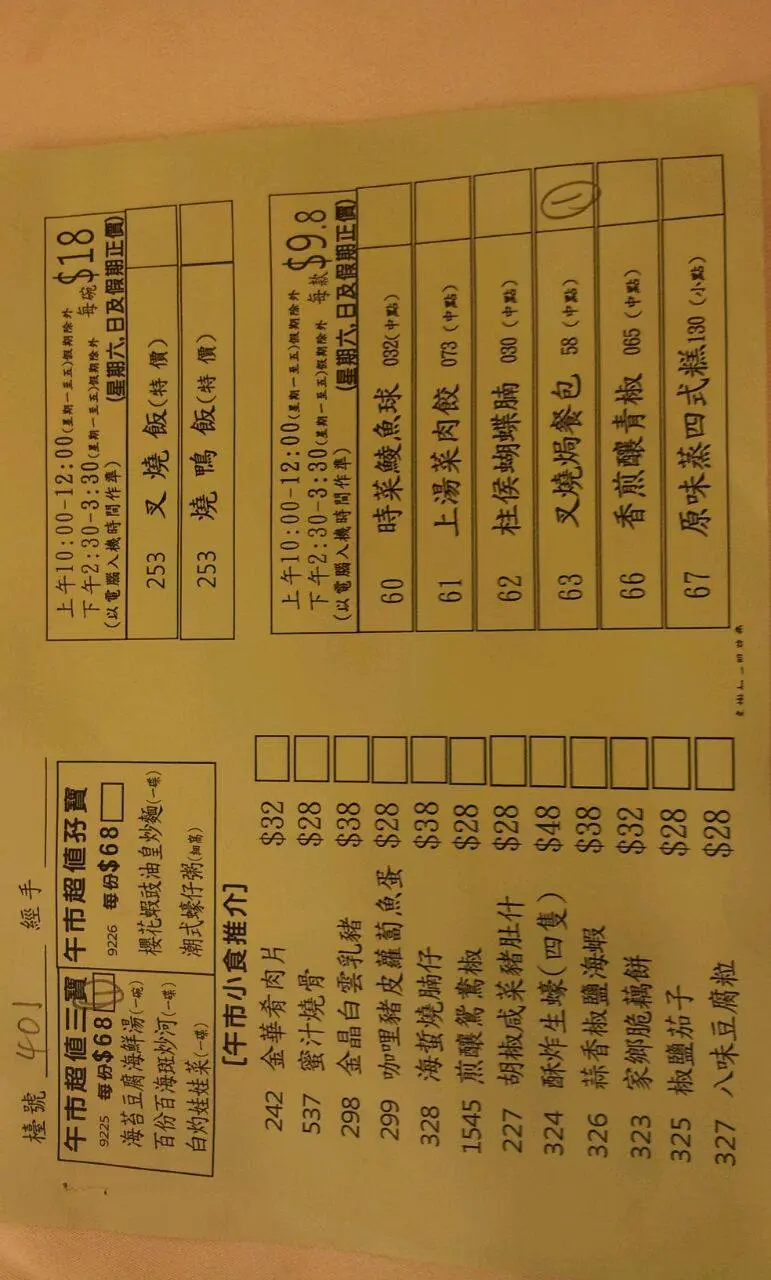 檯號 401 經手
午市超值三寶
9225 每份$68
海苔豆腐海鮮湯(一碗)
百份百海斑炒河(一碟)
白灼娃娃菜(一碟)
午市超值孖寶
9226 每份$68
櫻花蝦豉油皇炒麵(一碟)
潮式蠔仔粥(細窩)
[午市小食推介]
242 金華肴肉片 $32
537 蜜汁燒骨 $28
298 金晶白雲乳豬 $38
299 咖哩豬皮蘿蔔魚蛋 $28
328 海蜇燒腩仔 $38
1545 煎釀鴛鴦椒 $28
227 胡椒咸菜豬肚什 $28
324 酥炸生蠔(四隻) $48
326 蒜香椒鹽海蝦 $38
323 家鄉脆藕餅 $32
325 椒鹽茄子 $28
327 八味豆腐粒 $28
上午10:00-12:00(星期一至五)假期除外
下午2:30-3:30(星期一至五)假期除外 每碗$18
(以電腦入機時間作準) (星期六,日及假期正價)
253 叉燒飯(特價)
253 燒鴨飯(特價)
上午10:00-12:00(星期一至五)假期除外
下午2:30-3:30(星期一至五)假期除外 每款$9.8
(以電腦入機時間作準) (星期六,日及假期正價)
60 時菜鯪魚球 032(中點)
61 上湯菜肉餃 073(中點)
62 柱侯蝴蝶腩 030(中點)
63 叉燒焗餐包 58(中點)
66 香煎釀青椒 065(中點)
67 原味蒸四式糕 130(小點)